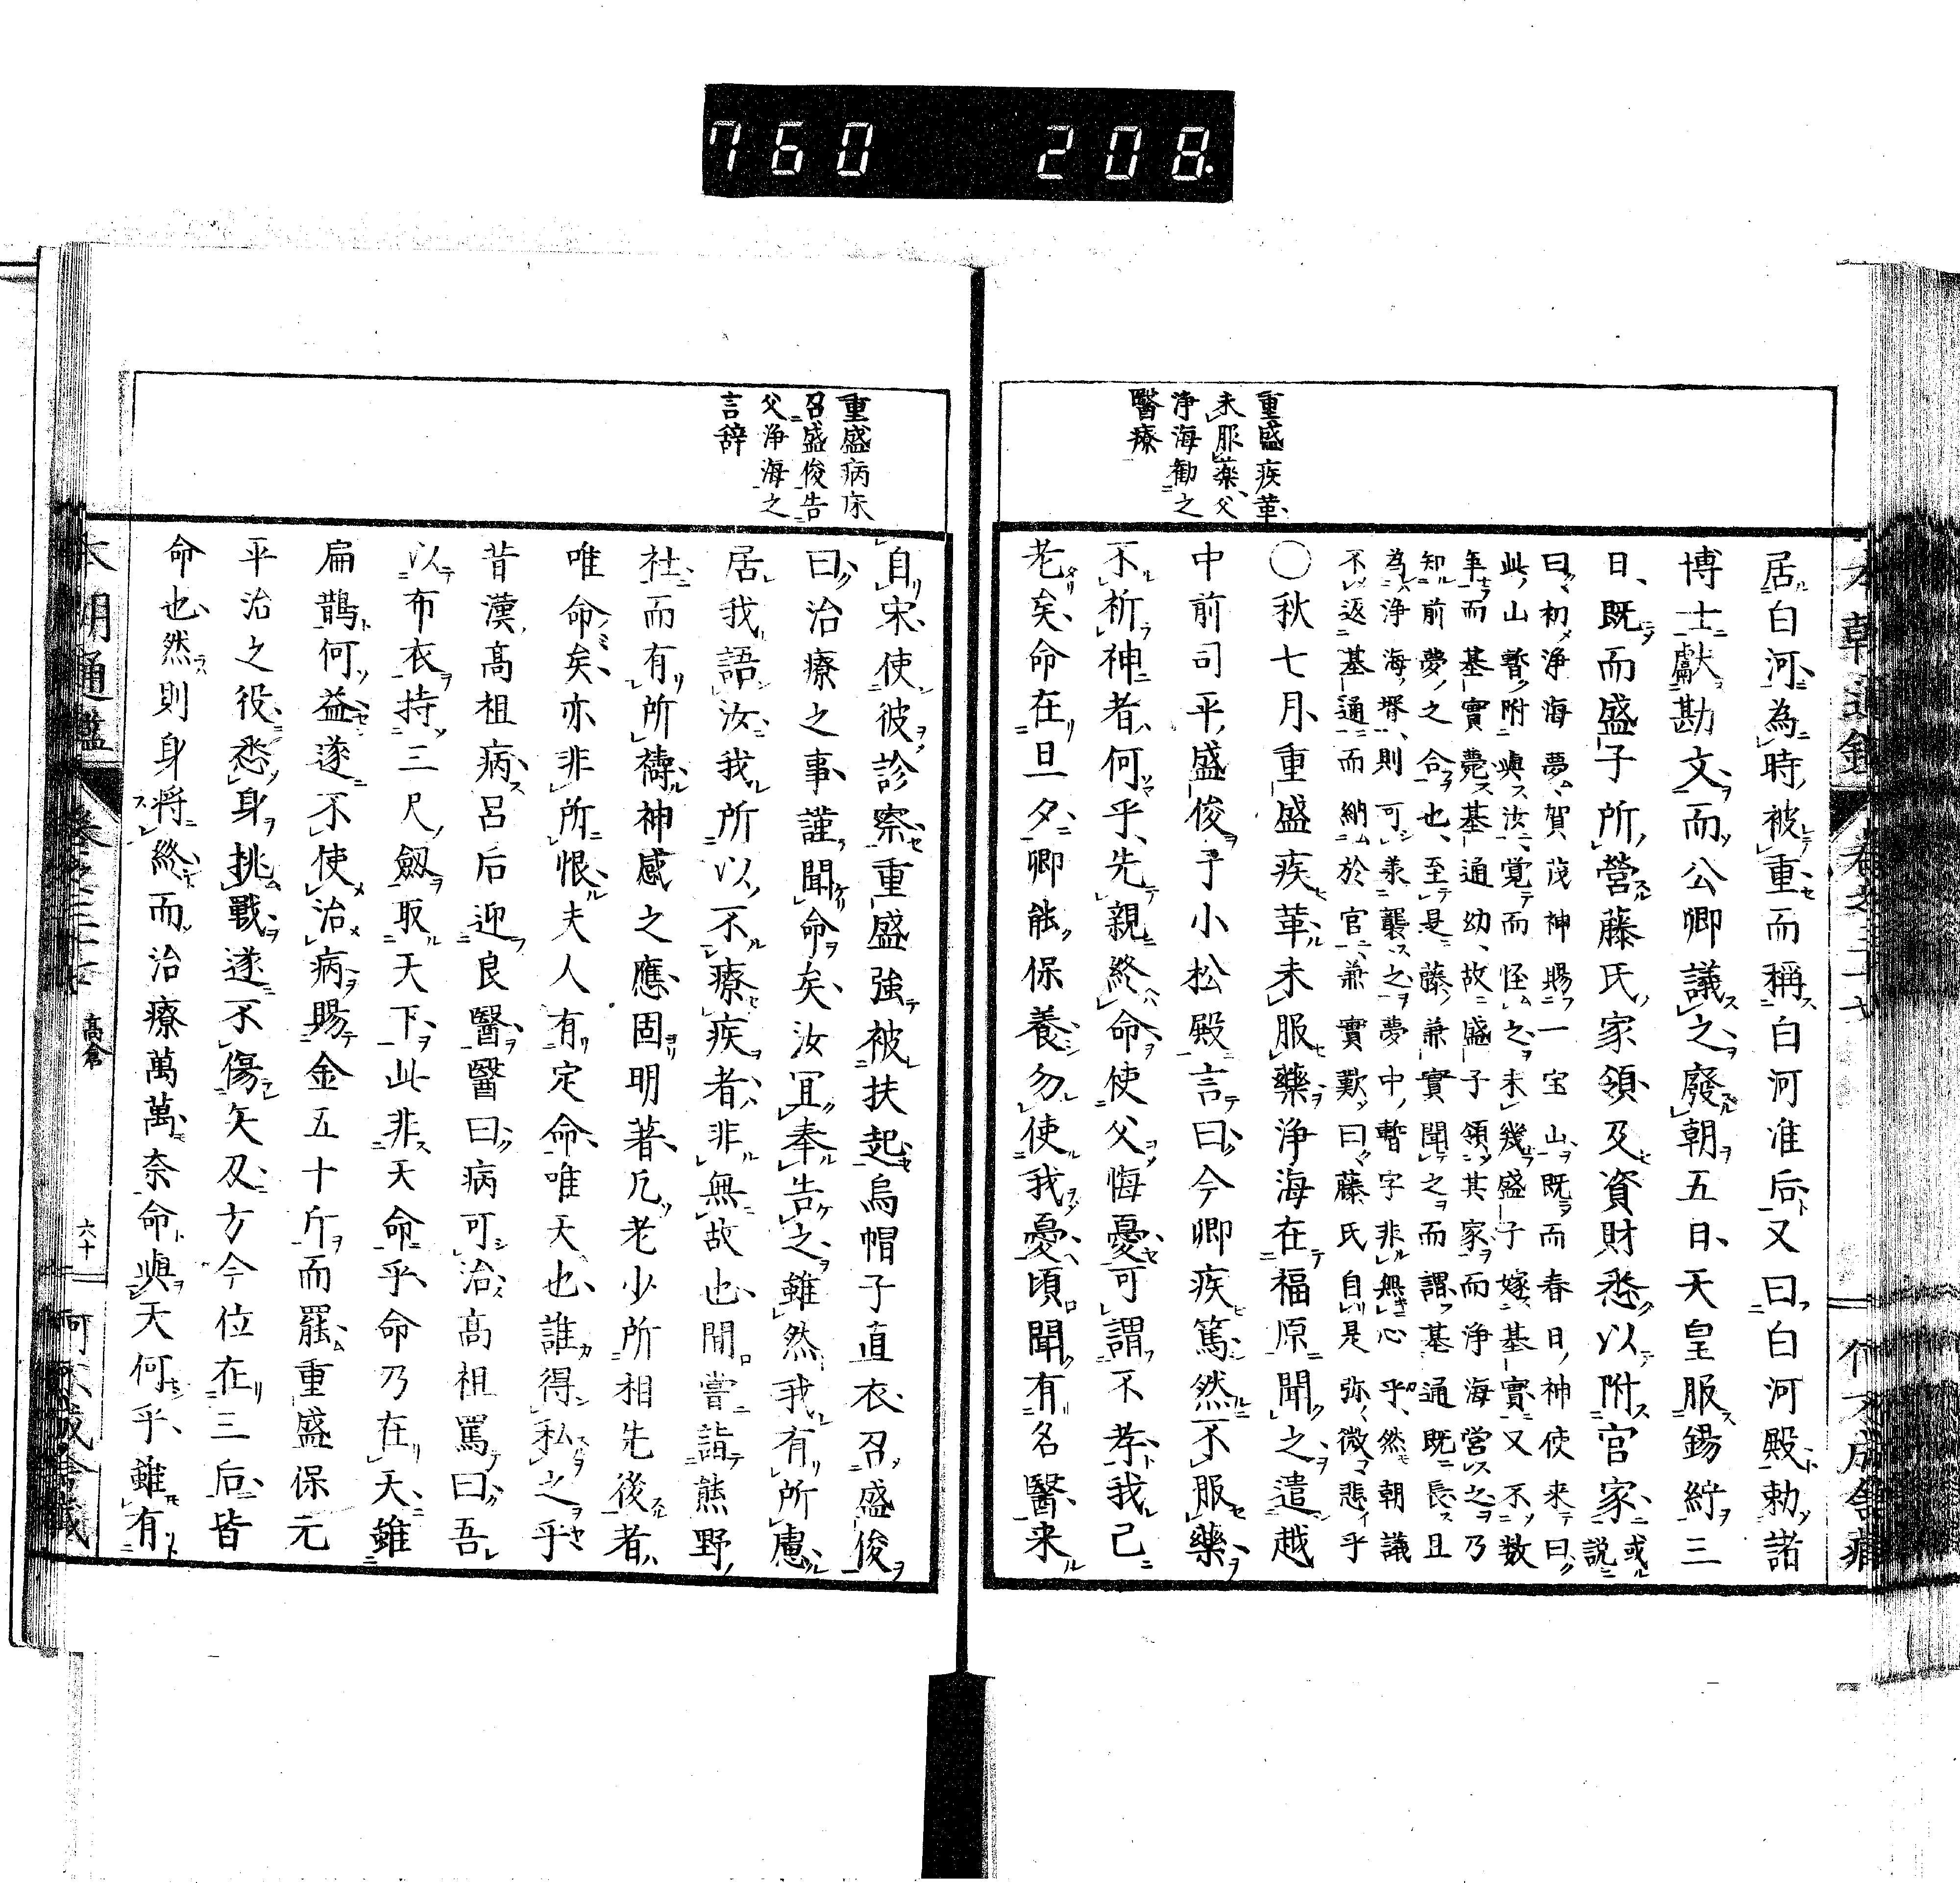 760 208.
重盛疾革
未服藥父
浄海勧之
醫療
居白河為時被重而稱白河准后又曰白河殿勅諸
博士獻勘文而公卿議之廢朝五日天皇服錫紵三
日既而盛子所營藤氏家領及資財悉以附官家或説
曰初浄海夢賀茂神賜一宝山既而春日神使来曰
此山暫附與汝覚而怪之未幾盛子嫁基實又不数
年而基實薨基通幼故盛子領其家而浄海営之乃
知前夢之合也至是藤兼實聞之而謂基通既長且
為浄海壻則可羕襲之夢中暫字非無心乎然朝議
不返基通而納於官兼實歎曰藤氏自是弥微悲乎
○秋七月重盛疾革未服藥浄海在福原聞之遣越
中前司平盛俊于小松殿言曰今卿疾篤然不服藥
不祈神者何乎先親終命使父悔憂可謂不孝我已
老矣命在旦夕卿能保養勿使我憂頃聞有名醫来
重盛病床
召盛俊告
父浄海之
言辞
自宋使彼診察重盛強被扶起烏帽子直衣召盛俊
曰治療之事謹聞命矣汝冝奉告之雖然我有所慮
居我語汝我所以不療疾者非無故也間嘗詣熊野
社而有所禱神感之應固明著凡老少所相先後者
唯命矣亦非所恨夫人有定命唯天也誰得私之乎
昔漢髙祖病呂后迎良醫醫曰病可治髙祖罵曰吾
以布衣持三尺劔取天下此非天命乎命乃在天雖
扁鵲何益遂不使治病賜金五十斤而罷重盛保元
平治之役悉身挑戰遂不傷矢及方今位在三后皆
命也然則身将終而治療萬萬奈命與天何乎雖有
本朝通鑑
髙倉
六十